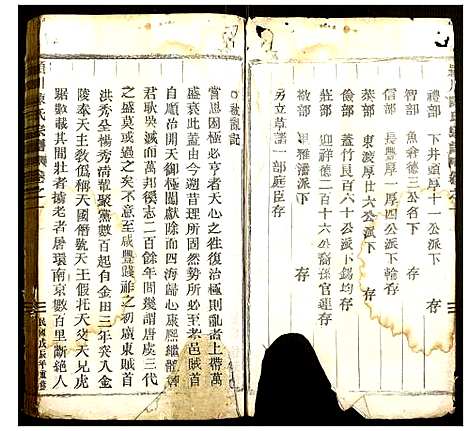 禮部 下井頭厚十一公派下 存
智部 魚翁德三公派下 存
信部 長豐厚一厚四公派下輪存
恭部 東渡厚廿六公派下 存
儉部 蓋竹艮百六十公派下錫均存
讓部 迎祥德二百十六公裔孫官蓮存
另立草譜一部庭臣存
被亂記
嘗思困極必亨者天心之往復治極則亂者上帶萬
盛衰此蓋由今週昔理所固然勢所必至者邑賊首
自順治開天御極闔獻除而四海歸心康熙繼體
君耿吳滅而萬邦復志二百餘年間幾謂唐虞三代
之盛莫或過之矣不意至咸豐踐祚之初廣東賊首
洪秀全楊秀清嘯聚黨數百起自金田三年突入金
陵奉天主教僞稱天國僭號天王假托天父天兄虐
騶數載其間壯者擄老者屠環南京數百里斷絕人
陳氏宗譜 卷之一
民國戊辰年重修